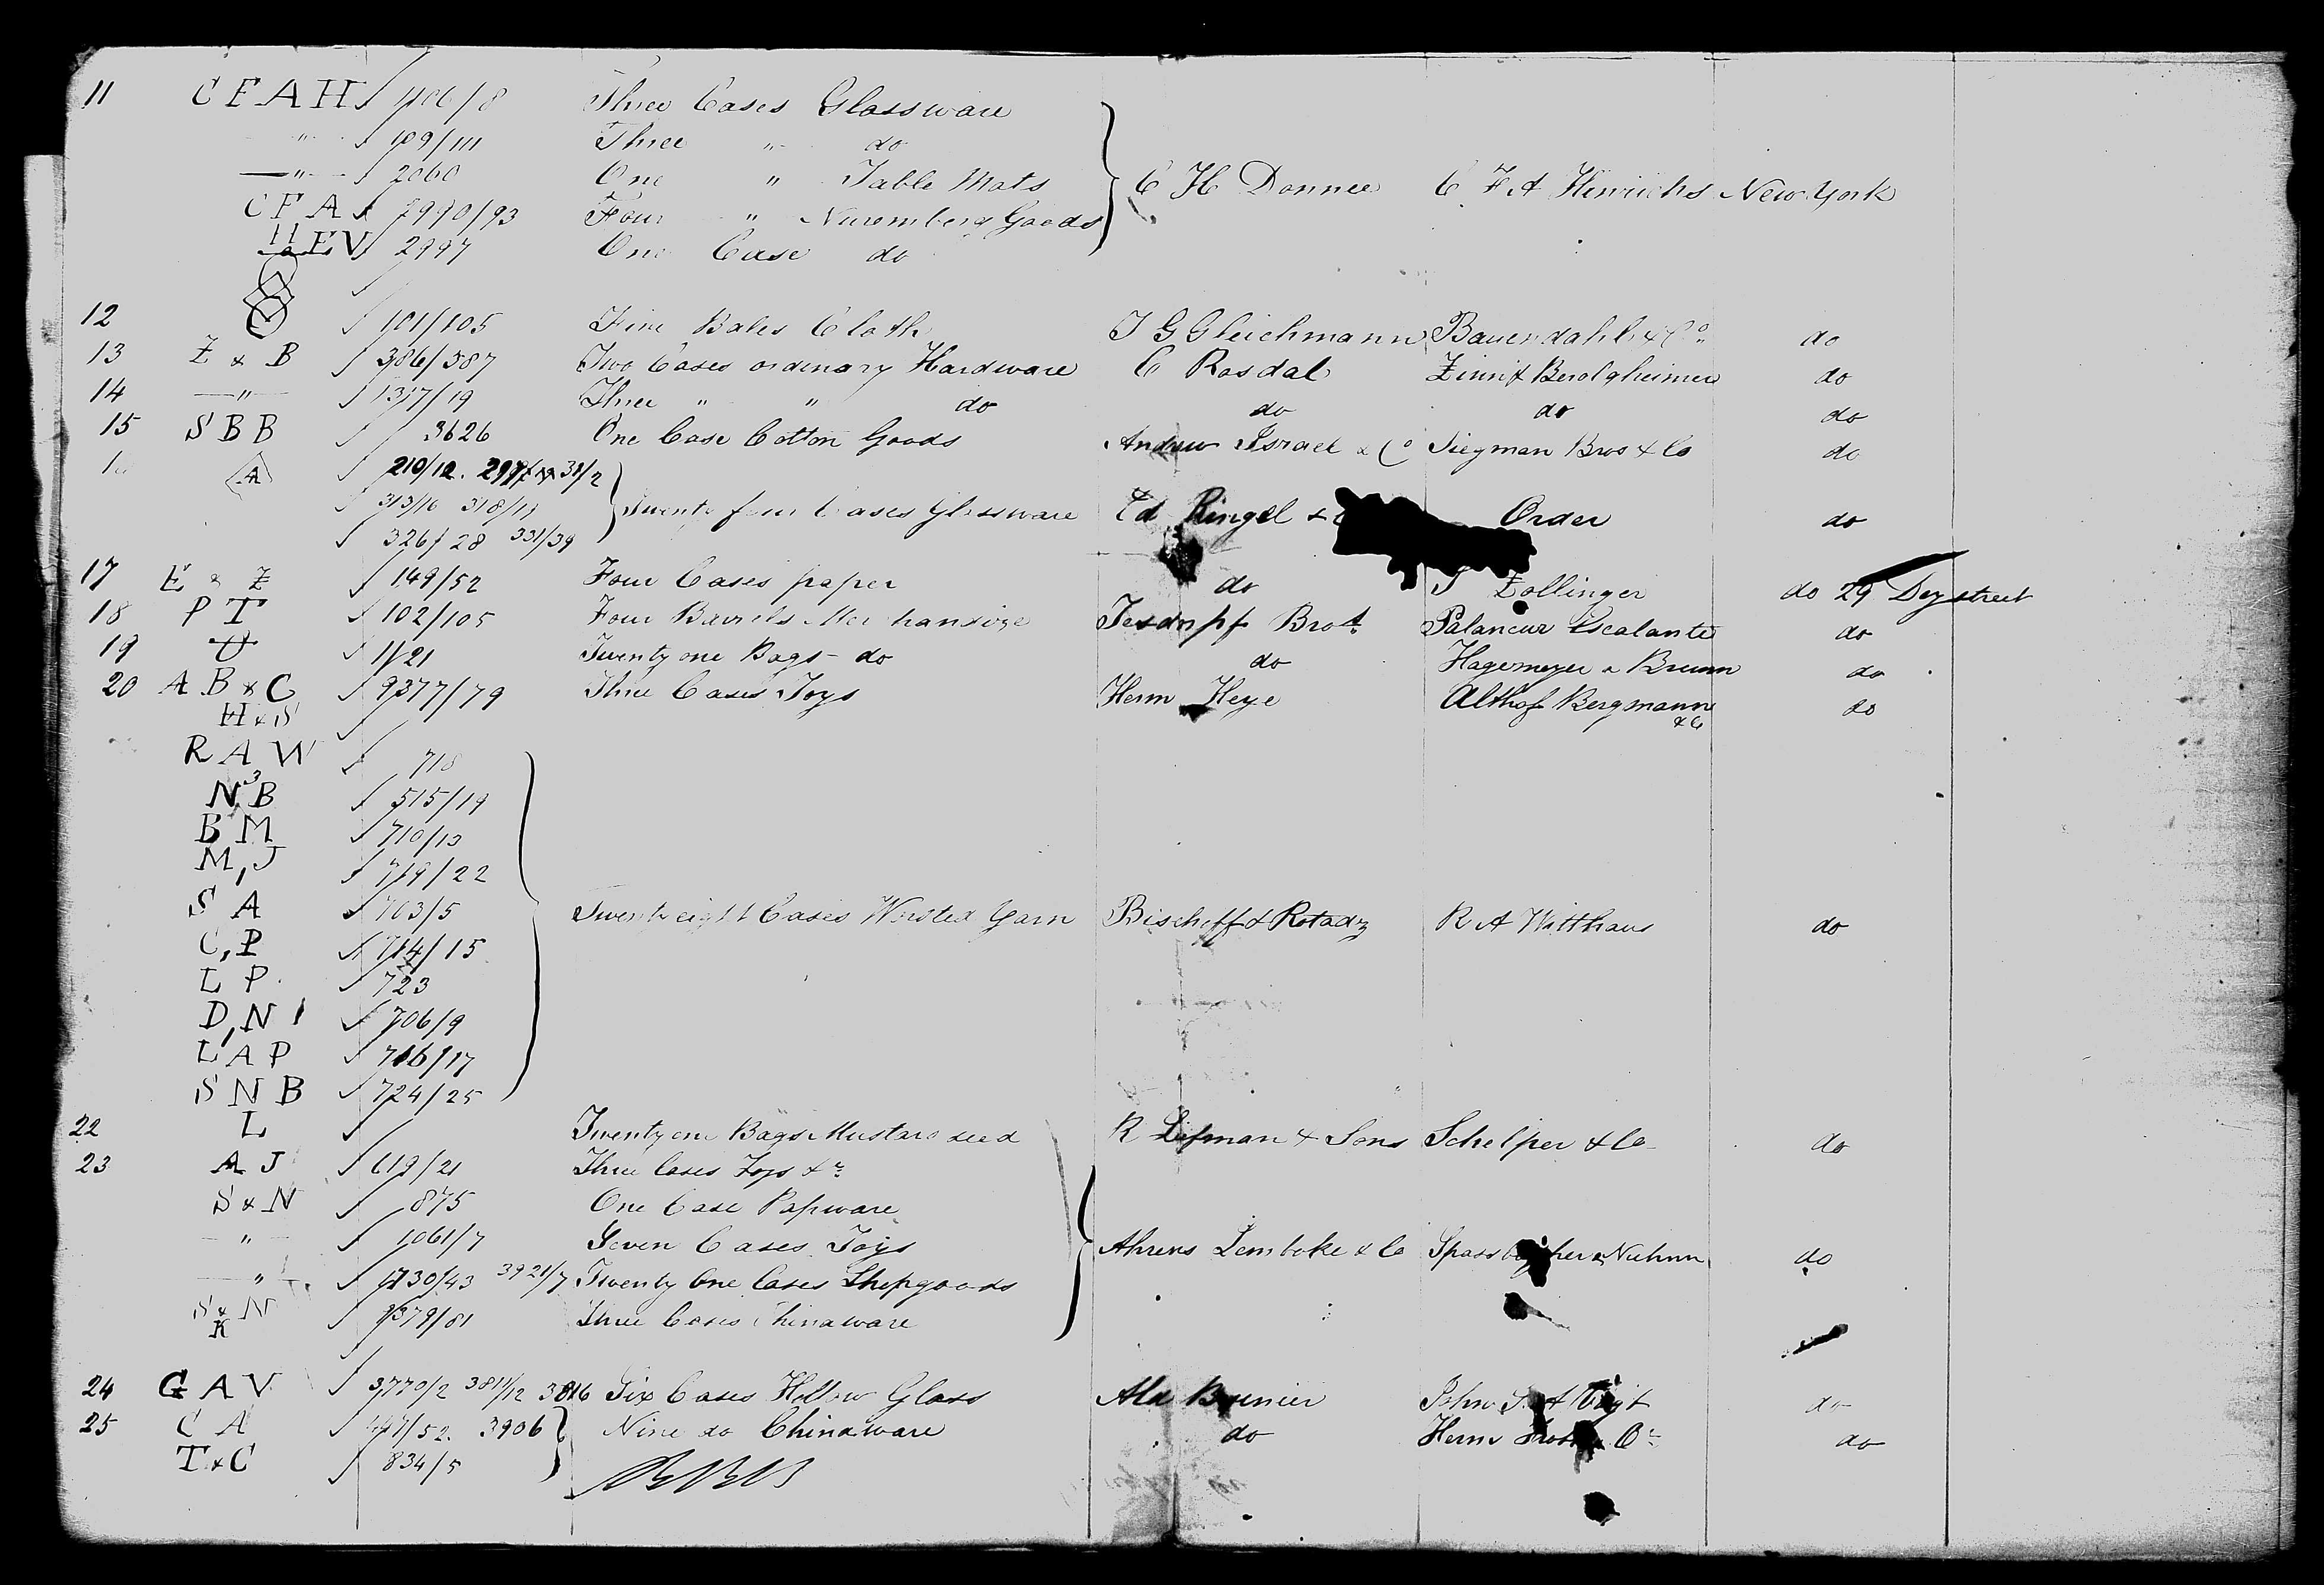 11 C F A H 106/8 Three Cases Glassware
" 109/111 Three " do
" 2060 One " Table Mats C H Donner C F A Hinrichs New York
C F A 2990/93 Four " Nuremberg Goods
H EV 2997 One Case do
12 101/105 Five Bales Cloth J G Gleichmann Bauendahl & Co do
13 Z & B 386/587 Two Cases ordinary Hardware C Rosdal Zinn & Berolgheimer do
14 " 1317/19 Three " " do do do do
15 S B B 3626 One Case Cotton Goods Andrew Israel & Co Siegman Bros & Co do
A 210/12.
313/16 318/19 Twenty four Cases Glassware Ed Ringel & Order do
326/28 331/39
17 E & Z 149/52 Four Cases paper do J Zollinger do 29 Dey street
18 P T 102/105 Four Barrels Merchandize Tesdorpf Bros Escalante do
19 U 1/21 Twenty one Bags do do Hagemeyer & Brunn do
20 A B & C 9377/79 Three Cases Toys Herm Heye Althof Bergmann do
H & S & Co
R A W 718
N 3 B 515/19
B M 710/13
M, J 719/22
S A 703/5 Twenty eight Cases Worsted Yarn Bischoff & R A Witthaus do
C, P 714/15
L P 723
D, N 706/9
L A P 716/17
S N B 724/25
22 L Twenty one Bags Mustard seed R Lipman & Sons Schelper & Co do
23 A J 619/21 Three Cases Toys &c
S & N 875 One Case Papware
" 1061/7 Seven Cases Toys Ahrens Lembcke & Co do
" 1730/43 3921/7 Twenty One Cases Shopgoods
S & N K 1379/81 Three Cases Chinaware
24 G A V 3770/2 3811/12 3816 Six Cases Hollow Glass Ald John do
25 C A 447/52. 3906 Nine do Chinaware do Herm Co do
T & C 834/5